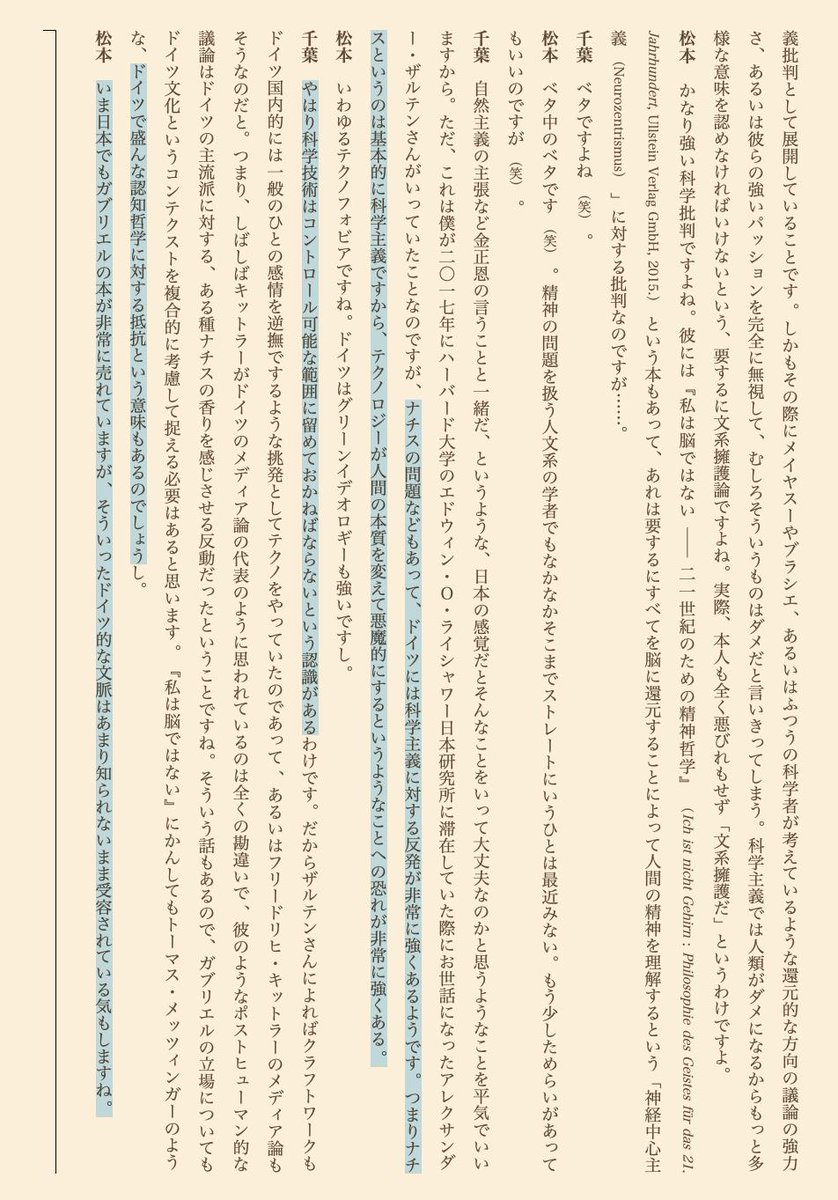 義批判として展開していることです。しかもその際にメイヤスーやブラシエ、あるいはふつうの科学者が考えているような還元的な方向の議論の強力
さ、あるいは彼らの強いパッションを完全に無視して、むしろそういうものはダメだと言いきってしまう。科学主義では人類がダメになるからもっと多
様な意味を認めなければいけないという、要するに文系擁護論ですよね。実際、本人も全く悪びれもせず「文系擁護だ」というわけですよ。
松本　かなり強い科学批判ですよね。彼には『私は脳ではない――二一世紀のための精神哲学』（Ich ist nicht Gehirn : Philosophie des Geistes für das 21.
Jahrhundert, Ullstein Verlag GmbH, 2015.）という本もあって、あれは要するにすべてを脳に還元することによって人間の精神を理解するという「神経中心主
義（Neurozentrismus）」に対する批判なのですが……。
千葉　ベタですよね（笑）。
松本　ベタ中のベタです（笑）。精神の問題を扱う人文系の学者でもなかなかそこまでストレートにいうひとは最近みない。もう少しためらいがあって
もいいのですが（笑）。
千葉　自然主義の主張など金正恩の言うことと一緒だ、というような、日本の感覚だとそんなことをいって大丈夫なのかと思うようなことを平気でいい
ますから。ただ、これは僕が二〇一七年にハーバード大学のエドウィン・O・ライシャワー日本研究所に滞在していた際にお世話になったアレクサンダ
ー・ザルテンさんがいっていたことなのですが、ナチスの問題などもあって、ドイツには科学主義に対する反発が非常に強くあるようです。つまりナチ
スというのは基本的に科学主義ですから、テクノロジーが人間の本質を変えて悪魔的にするというようなことへの恐れが非常に強くある。
松本　いわゆるテクノフォビアですね。ドイツはグリーンイデオロギーも強いですし。
千葉　やはり科学技術はコントロール可能な範囲に留めておかねばならないという認識があるわけです。だからザルテンさんによればクラフトワークも
ドイツ国内的には一般のひとの感情を逆撫でするような挑発としてテクノをやっていたのであって、あるいはフリードリヒ・キットラーのメディア論も
そうなのだと。つまり、しばしばキットラーがドイツのメディア論の代表のように思われているのは全くの勘違いで、彼のようなポストヒューマン的な
議論はドイツの主流派に対する、ある種ナチスの香りを感じさせる反動だったということですね。そういう話もあるので、ガブリエルの立場についても
ドイツ文化というコンテクストを複合的に考慮して捉える必要はあると思います。『私は脳ではない』にかんしてもトーマス・メッツィンガーのよう
な、ドイツで盛んな認知哲学に対する抵抗という意味もあるのでしょうし。
松本　いま日本でもガブリエルの本が非常に売れていますが、そういったドイツ的な文脈はあまり知られないまま受容されている気もしますね。